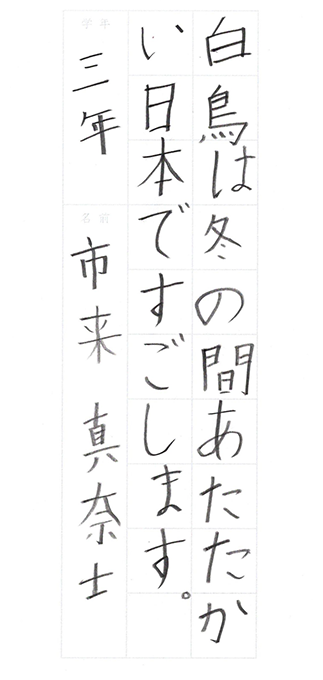 白鳥は冬の間あたたか
い日本ですごします。
学年 三年 名前 市来 真奈士